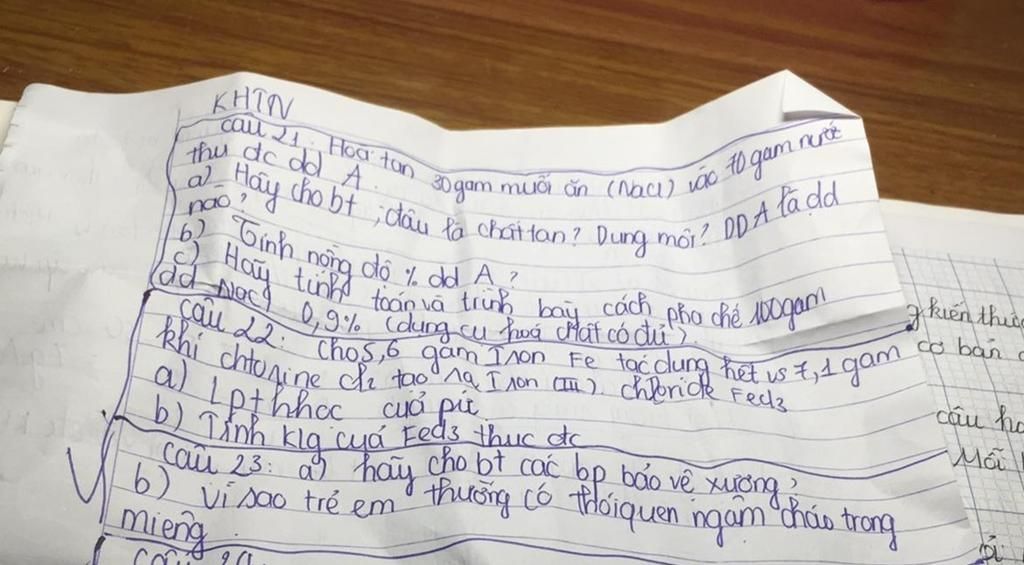 KHTN
câu 21: Hoà tan 30gam muối ăn (Nacl) vào 70 gam nước
thu đc dd A.
a) Hãy cho bt, đâu là chất tan? Dung môi? DD A là dd
nào?
b) Tính nồng độ % dd A?
c) Hãy tính toán và trình bày cách pha chế 100gam
dd Nacl 0,9% (dụng cụ hoá chất có đủ)
câu 22: Cho 5,6 gam Iron Fe tác dụng hết vs 7,1 gam
khí chtorine cl2 tạo ra Iron (III). chloride Fecl3
a) Lpthhoc của pư
b) Tính klg của Fecl3 thuc đc
câu 23: a) hãy cho bt các bp bảo vệ xương?
b) vì sao trẻ em thường có thói quen ngậm cháo trong
miệng.
câu
g kiến thức
cơ bản
câu
Mỗi